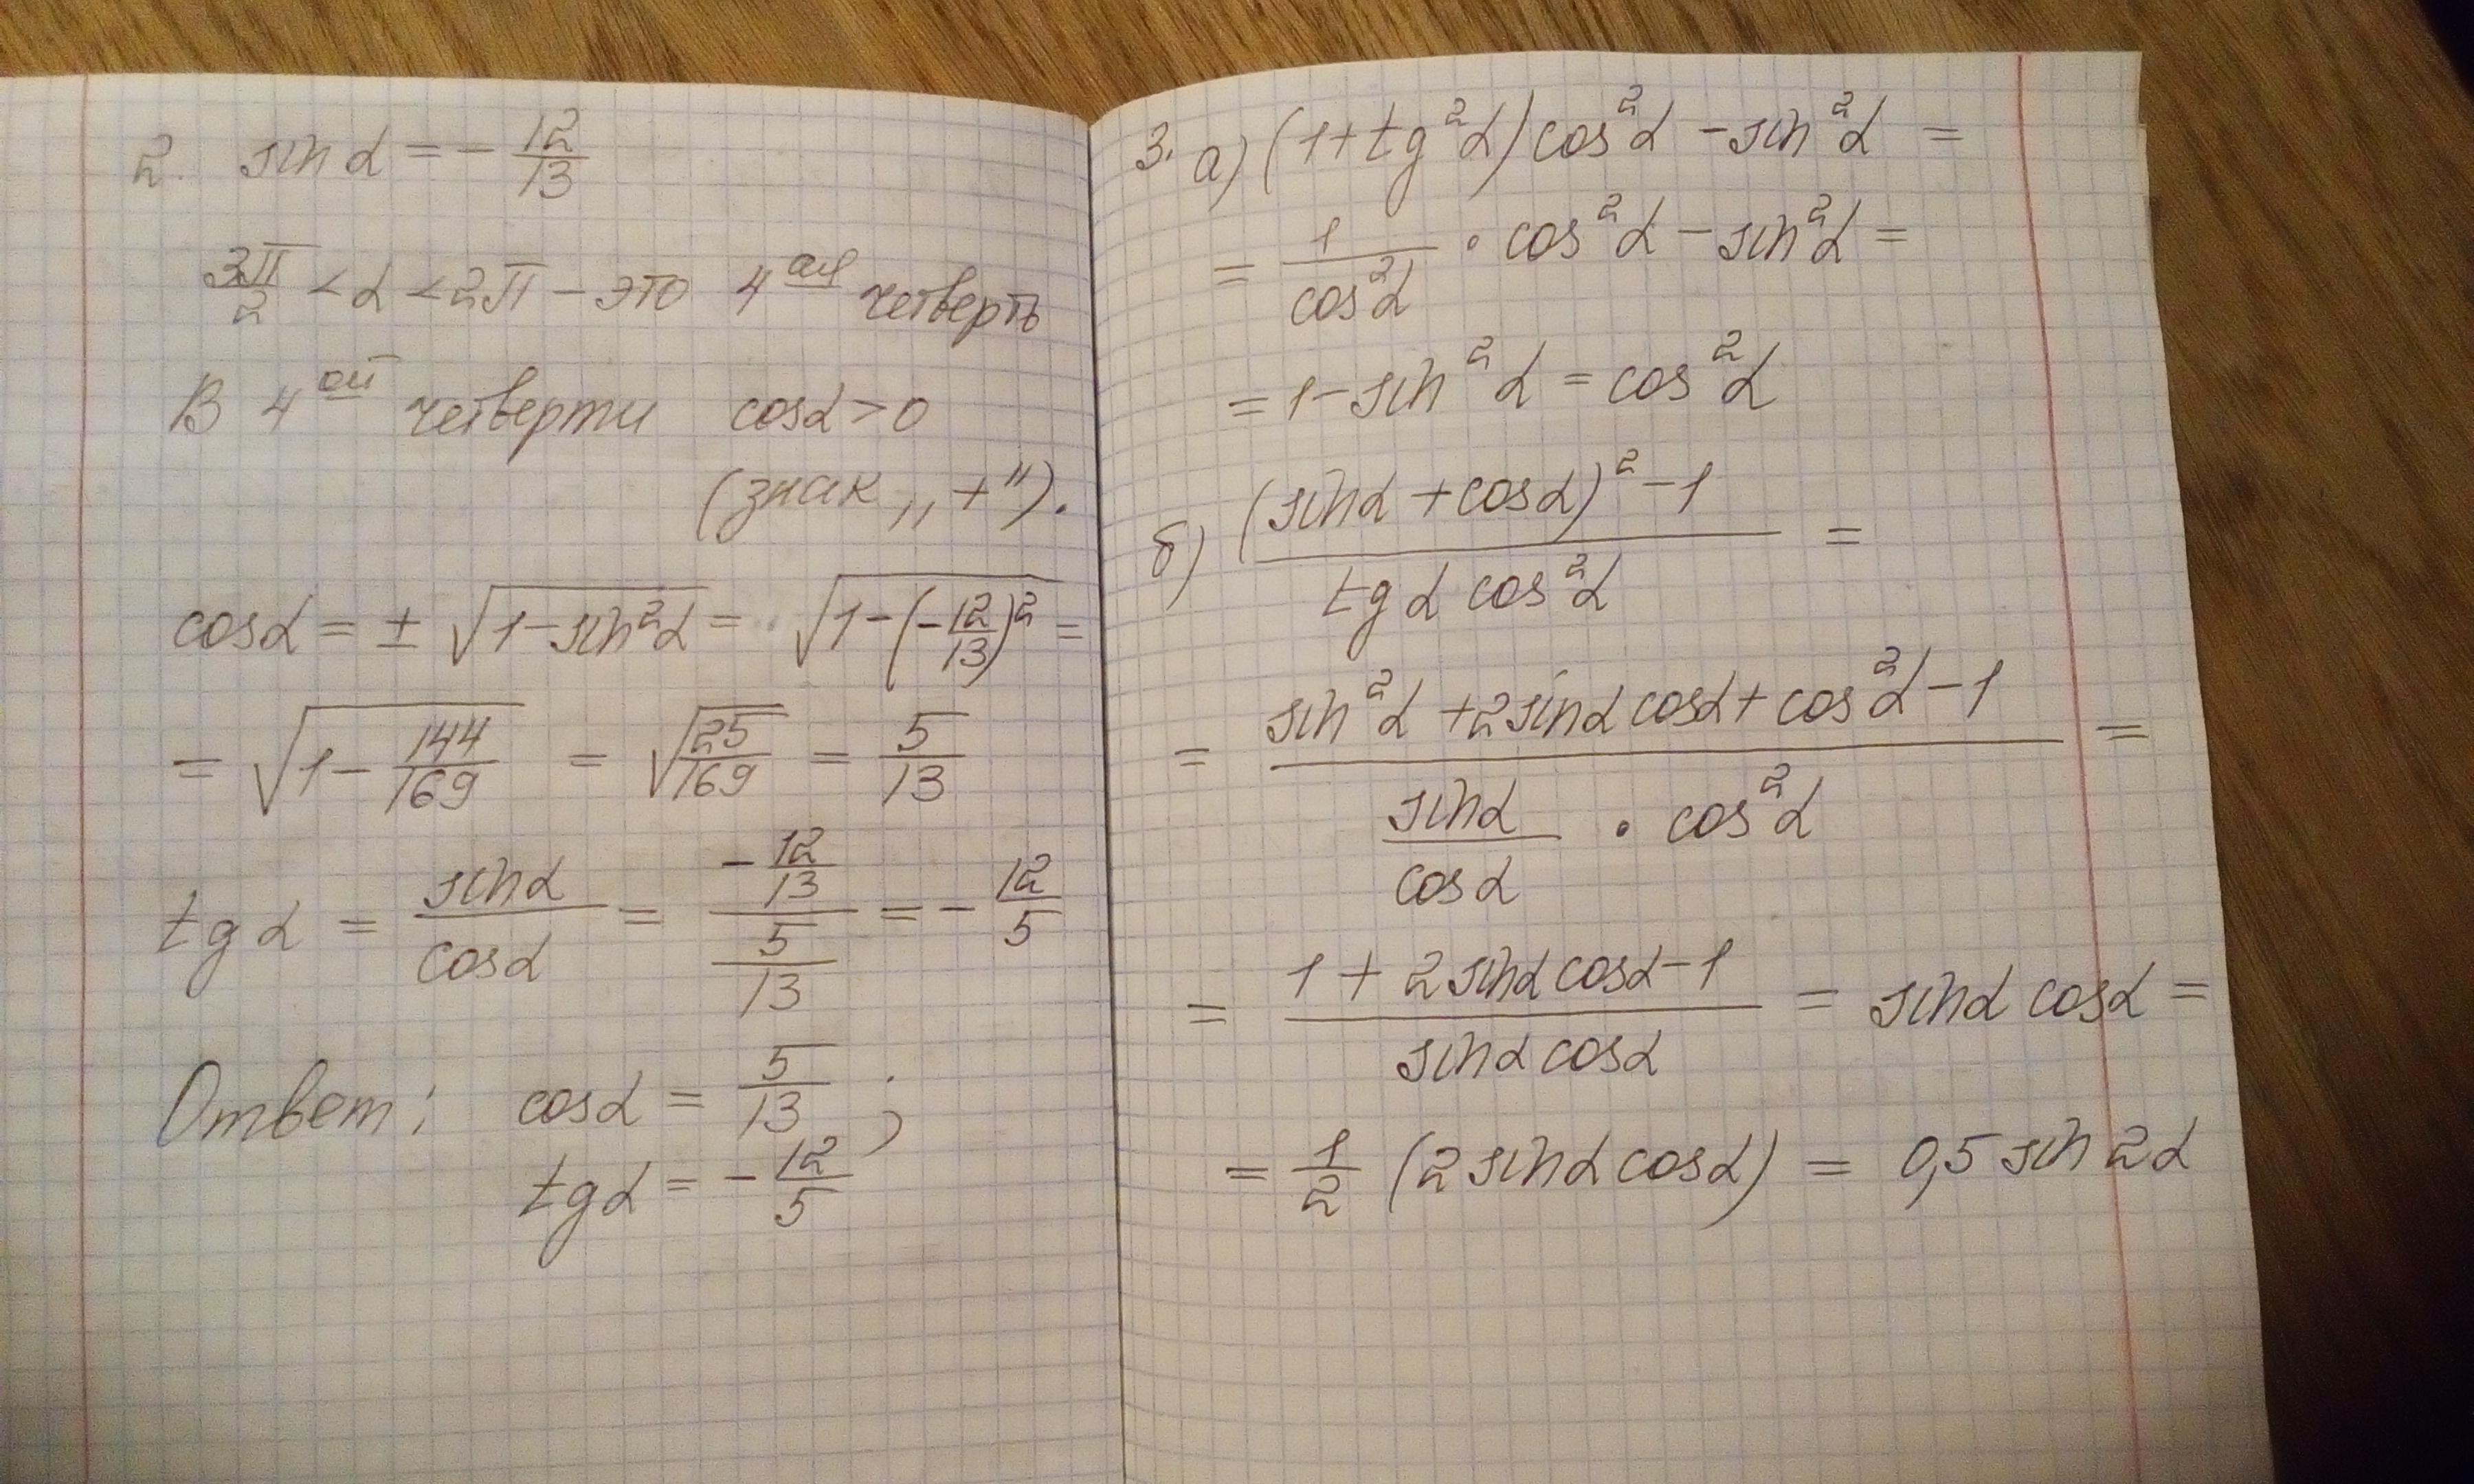 2. sin α = - 12/13
3π/2 < α < 2π - это 4ая четверть
В 4ой четверти cosα > 0
(знак „+").
cosα = ± √(1-sin²α) = √(1-(-12/13)²) =
= √(1 - 144/169) = √(25/169) = 5/13
tg α = sinα/cosα = (-12/13)/(5/13) = - 12/5
Ответ: cosα = 5/13 ;
tgα = - 12/5
3. а) (1+tg²α) cos²α - sin²α =
= 1/cos²α · cos²α - sin²α =
= 1 - sin²α = cos²α
б) ((sinα + cosα)² - 1)/(tgα cos²α) =
= (sin²α + 2sinα cosα + cos²α - 1)/(sinα/cosα · cos²α) =
= (1 + 2sinα cosα - 1)/(sinα cosα) = sinα cosα =
= 1/2 (2 sinα cosα) = 0,5 sin 2α